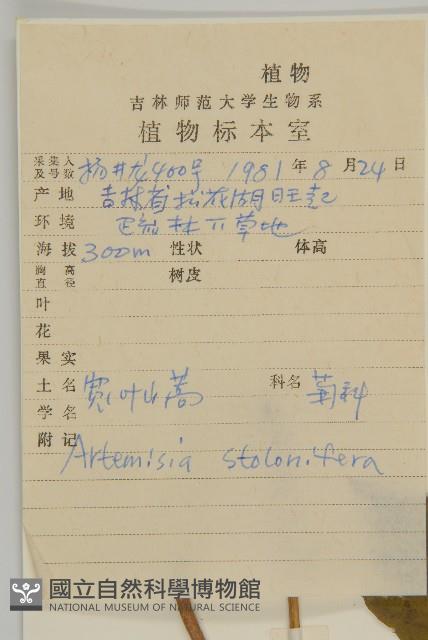 植物
吉林师范大学生物系
植物标本室
采集人及号数 杨井龙400号 1981年8月24日
产地 吉林省松花湖旺起
环境 疏林下草地
海拔 300m 性状 体高
胸高直径 树皮
叶
花
果实
土名 宽叶山蒿 科名 菊科
学名
附记 Artemisia stolonifera
國立自然科學博物館
NATIONAL MUSEUM OF NATURAL SCIENCE